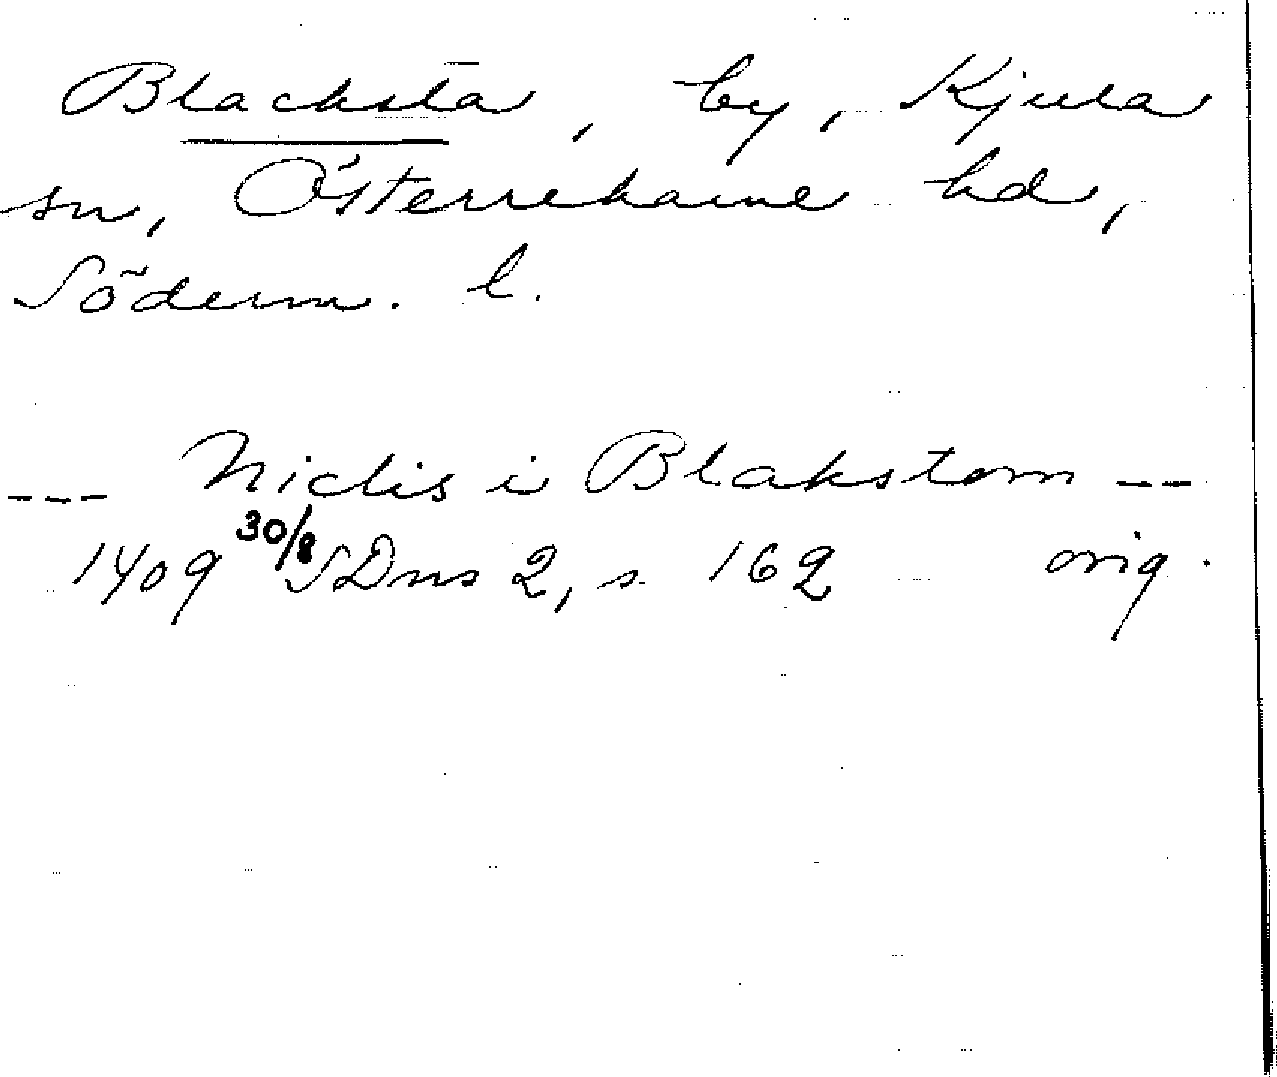 Blacksta, by, Kjula
sn, Österrekarne hd,
Söderm. l.
--- Niclis i Blakstom --
1409 30/8 SDns 2, s 162 orig.